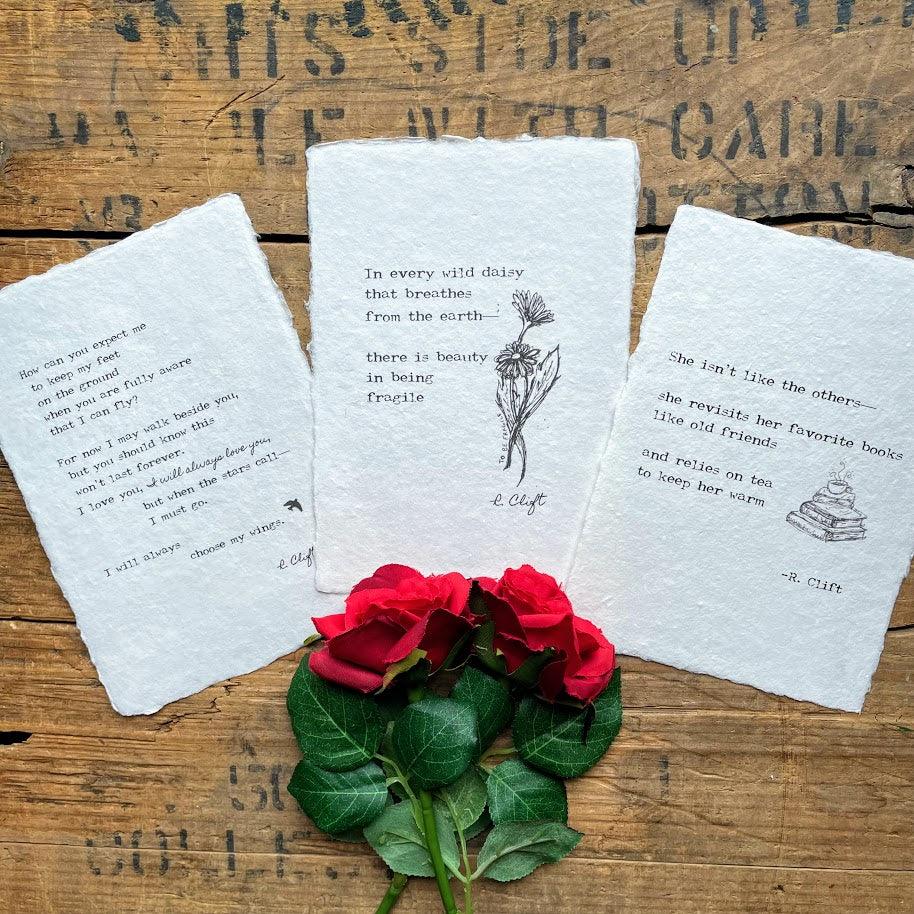 THIS SIDE UP
WITH CARE
How can you expect me
to keep my feet
on the ground
when you are fully aware
that I can fly?
For now I may walk beside you,
but you should know this
won't last forever.
I love you, I will always love you,
but when the stars call—
I must go.
I will always choose my wings.
R. Clift
In every wild daisy
that breathes
from the earth—
there is beauty
in being
fragile
R. Clift
She isn't like the others—
she revisits her favorite books
like old friends
and relies on tea
to keep her warm
-R. Clift